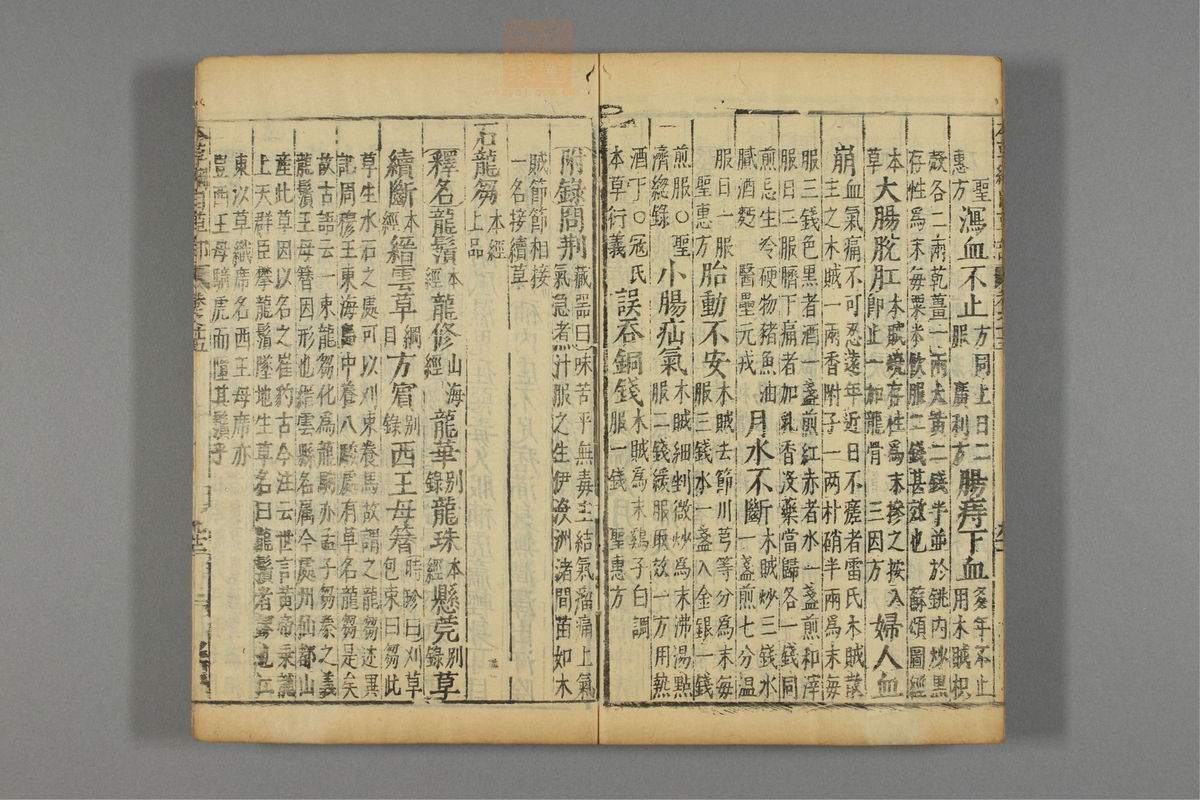 聖惠方 瀉血不止 方同上日二服 廣利方 腸痔下血 多年不止用木賊枳
殼各二兩乾薑一兩大黃二錢半並於銚内炒黑
存性爲末每粟米飲服二錢甚效也 蘇頌圖經
本草 大腸脫肛 木賊燒存性爲末摻之按入即止一加龍骨 三因方 婦人血
崩 血氣痛不可忍遠年近日不瘥者雷氏木賊散
主之木賊一兩香附子一兩朴硝半兩爲末每
服三錢色黑者酒一盞煎紅赤者水一盞煎和滓
服日二服臍下痛者加乳香没藥當歸各一錢同
煎忌生冷硬物猪魚油膩酒麪 醫壘元戎 月水不斷 木賊炒三錢水一盞煎七分温
服日一服 聖惠方 胎動不安 木賊去節川芎等分爲末每服三錢水一盞入金銀一錢
煎服○聖濟總錄 小腸疝氣 木賊細剉微炒爲末沸湯㸃服二錢緩服取效一方用熱
酒下○寇氏本草衍義 誤吞銅錢 木賊爲末鷄子白調服一錢 聖惠方
附錄問荆 藏器曰味苦平無毒主結氣瘤痛上氣
氣急煮汁服之生伊洛洲渚間苗如木
賊節節相接一名接續草
石龍芻 本經上品
釋名龍鬚 本經 龍修 山海經 龍華 别錄 龍珠 本經 懸莞 别錄 草
續斷 本經 縉雲草 綱目 方賓 别錄 西王母簪 時珍曰刈草包束曰芻此
草生水石之處可以刈束養馬故謂之龍芻述異
記周穆王東海島中養八駿處有草名龍芻是矣
故古語云一束龍芻化爲龍駒亦孟子芻豢之義
龍鬚王母簪因形也縉雲縣名屬今處州仙都山
産此草因以名之崔豹古今注云世言黃帝乘龍
上天群臣攀龍鬚墜地生草名曰龍鬚者謬也江
東以草織席名西王母席亦
豈西王母騎虎而墮其鬚乎